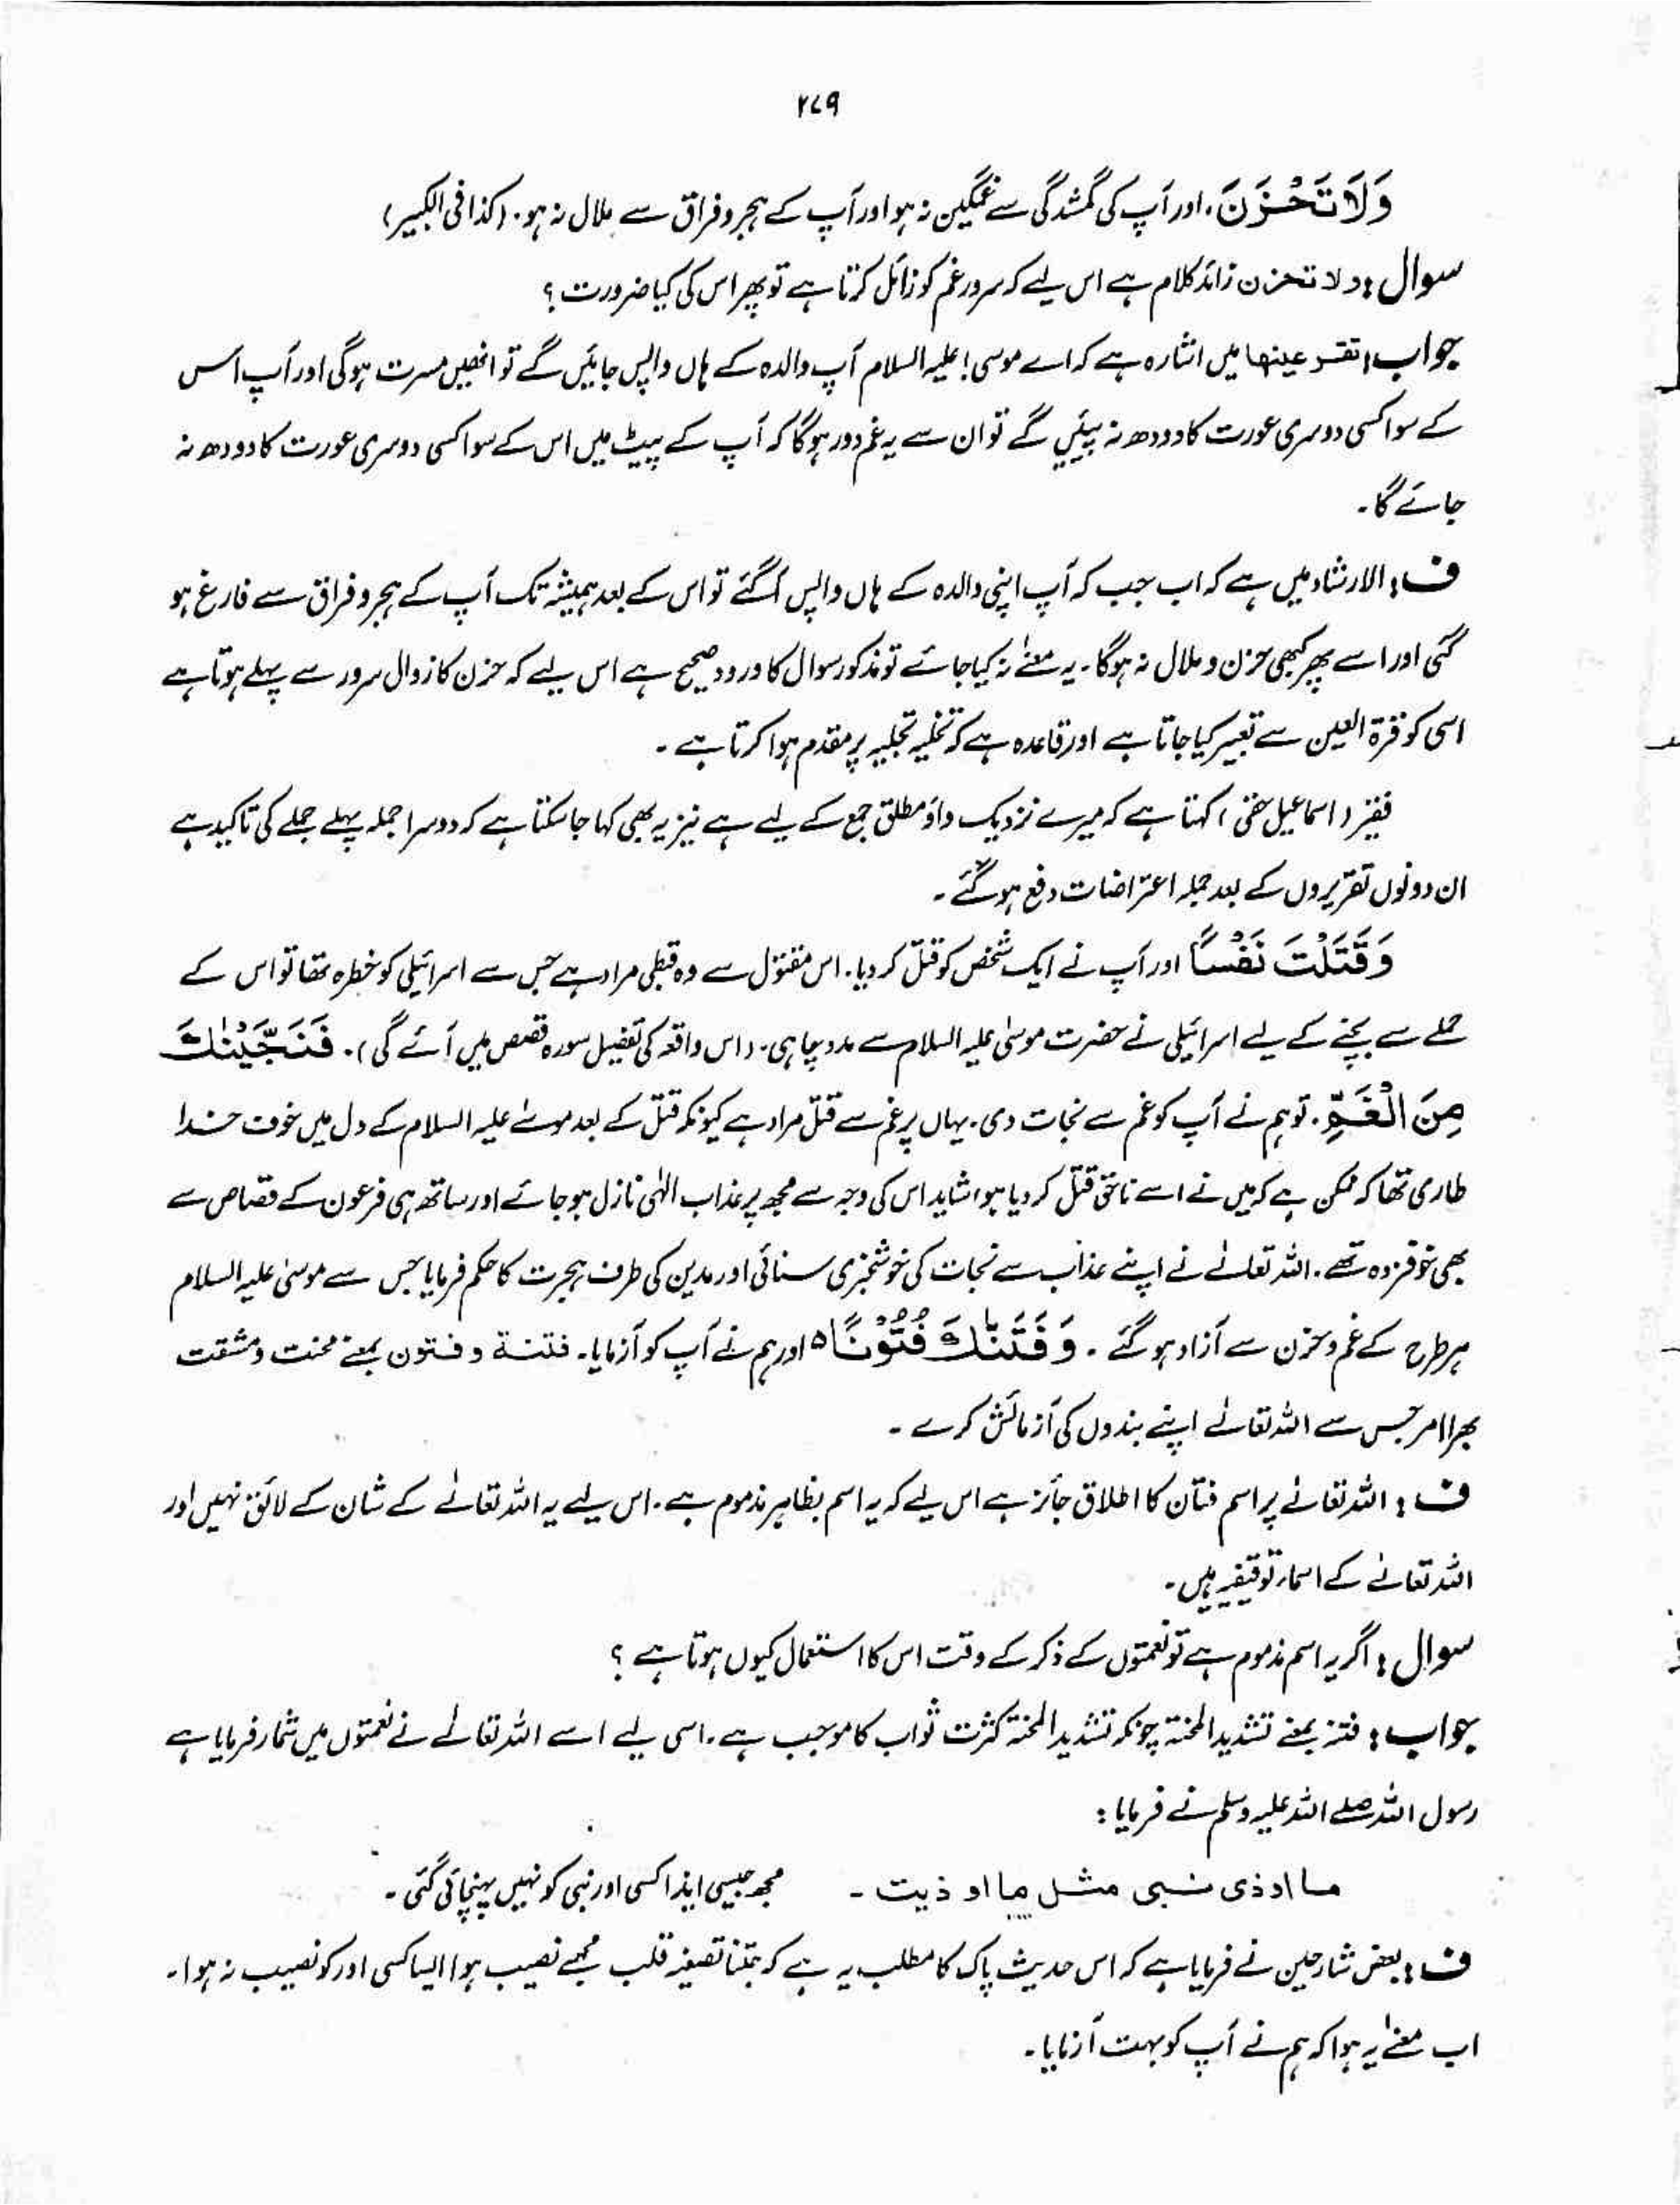 ۲۷۹
وَلَا تَحْزَنَ۔ اور آپ کی گمشدگی سے غمگین نہ ہو اور آپ کے ہجر و فراق سے ملال نہ ہو۔ (کذا فی الکبیر)
سوال: ولا تحزن زائد کلام ہے اس لیے کہ سرور غم کو زائل کرتا ہے تو پھر اس کی کیا ضرورت؟
جواب: تقر عینھا میں اشارہ ہے کہ اے موسی! علیہ السلام آپ والدہ کے ہاں واپس جائیں گے تو انھیں مسرت ہوگی اور آپ اس
کے سوا کسی دوسری عورت کا دودھ نہ پیئیں گے تو ان سے یہ غم دور ہوگا کہ آپ کے پیٹ میں اس کے سوا کسی دوسری عورت کا دودھ نہ
جائے گا۔
ف: الارشاد میں ہے کہ اب جب کہ آپ اپنی والدہ کے ہاں واپس آگئے تو اس کے بعد ہمیشہ تک آپ کے ہجر و فراق سے فارغ ہو
گئی اور اسے پھر کبھی حزن و ملال نہ ہوگا۔ یہ معنےٰ نہ کیا جائے تو مذکور سوال کا ورود صحیح ہے اس لیے کہ حزن کا زوال سرور سے پہلے ہوتا ہے
اسی کو قرۃ العین سے تعبیر کیا جاتا ہے اور قاعدہ ہے کہ تخلیہ تجلیہ پر مقدم ہوا کرتا ہے۔
فقیر (اسماعیل حقی) کہتا ہے کہ میرے نزدیک واؤ مطلق جمع کے لیے ہے نیز یہ بھی کہا جا سکتا ہے کہ دوسرا جملہ پہلے جملے کی تاکید ہے
ان دونوں تقریروں کے بعد جملہ اعتراضات دفع ہو گئے۔
وَقَتَلْتَ نَفْسًا اور آپ نے ایک شخص کو قتل کر دیا۔ اس مقتول سے وہ قبطی مراد ہے جس سے اسرائیلی کو خطرہ تھا تو اس کے
حملے سے بچنے کے لیے اسرائیلی نے حضرت موسیٰ علیہ السلام سے مدد چاہی۔ (اس واقعہ کی تفصیل سورہ قصص میں آئے گی)۔ فَنَجَّيْنٰكَ
مِنَ الْغَمِّ۔ تو ہم نے آپ کو غم سے نجات دی۔ یہاں پر غم سے قتل مراد ہے کیونکہ قتل کے بعد موسےٰ علیہ السلام کے دل میں خوف خدا
طاری تھا کہ ممکن ہے کہ میں نے اسے ناحق قتل کر دیا ہو، شاید اس کی وجہ سے مجھ پر عذاب الٰہی نازل ہو جائے اور ساتھ ہی فرعون کے قصاص سے
بھی خوفزدہ تھے۔ اللہ تعالےٰ نے اپنے عذاب سے نجات کی خوشخبری سنائی اور مدین کی طرف ہجرت کا حکم فرمایا جس سے موسیٰ علیہ السلام
ہر طرح کے غم و حزن سے آزاد ہو گئے۔ وَ فَتَنّٰكَ فُتُوْنًا ٥ اور ہم نے آپ کو آزمایا۔ فتنة و فتون بمعنے محنت و مشقت
بھرا امر جس سے اللہ تعالےٰ اپنے بندوں کی آزمائش کرے۔
ف: اللہ تعالےٰ پر اسم فتان کا اطلاق جائز ہے اس لیے کہ یہ اسم بظاہر مذموم ہے۔ اس لیے یہ اللہ تعالےٰ کے شان کے لائق نہیں اور
اللہ تعالےٰ کے اسماء توقیفیہ ہیں۔
سوال: اگر یہ اسم مذموم ہے تو نعمتوں کے ذکر کے وقت اس کا استعمال کیوں ہوتا ہے؟
جواب: فتنہ بمعنے تشدید المحنۃ چونکہ تشدید المحنۃ کثرت ثواب کا موجب ہے۔ اسی لیے اسے اللہ تعالےٰ نے نعمتوں میں شمار فرمایا ہے
رسول اللہ صلے اللہ علیہ وسلم نے فرمایا:
ما اوذی نبی مثل ما اوذیت۔ مجھ جیسی ایذا کسی اور نبی کو نہیں پہنچائی گئی۔
ف: بعض شارحین نے فرمایا ہے کہ اس حدیث پاک کا مطلب یہ ہے کہ جتنا تصفیہ قلب مجھے نصیب ہوا ایسا کسی اور کو نصیب نہ ہوا۔
اب معنےٰ یہ ہوا کہ ہم نے آپ کو بہت آزمایا۔